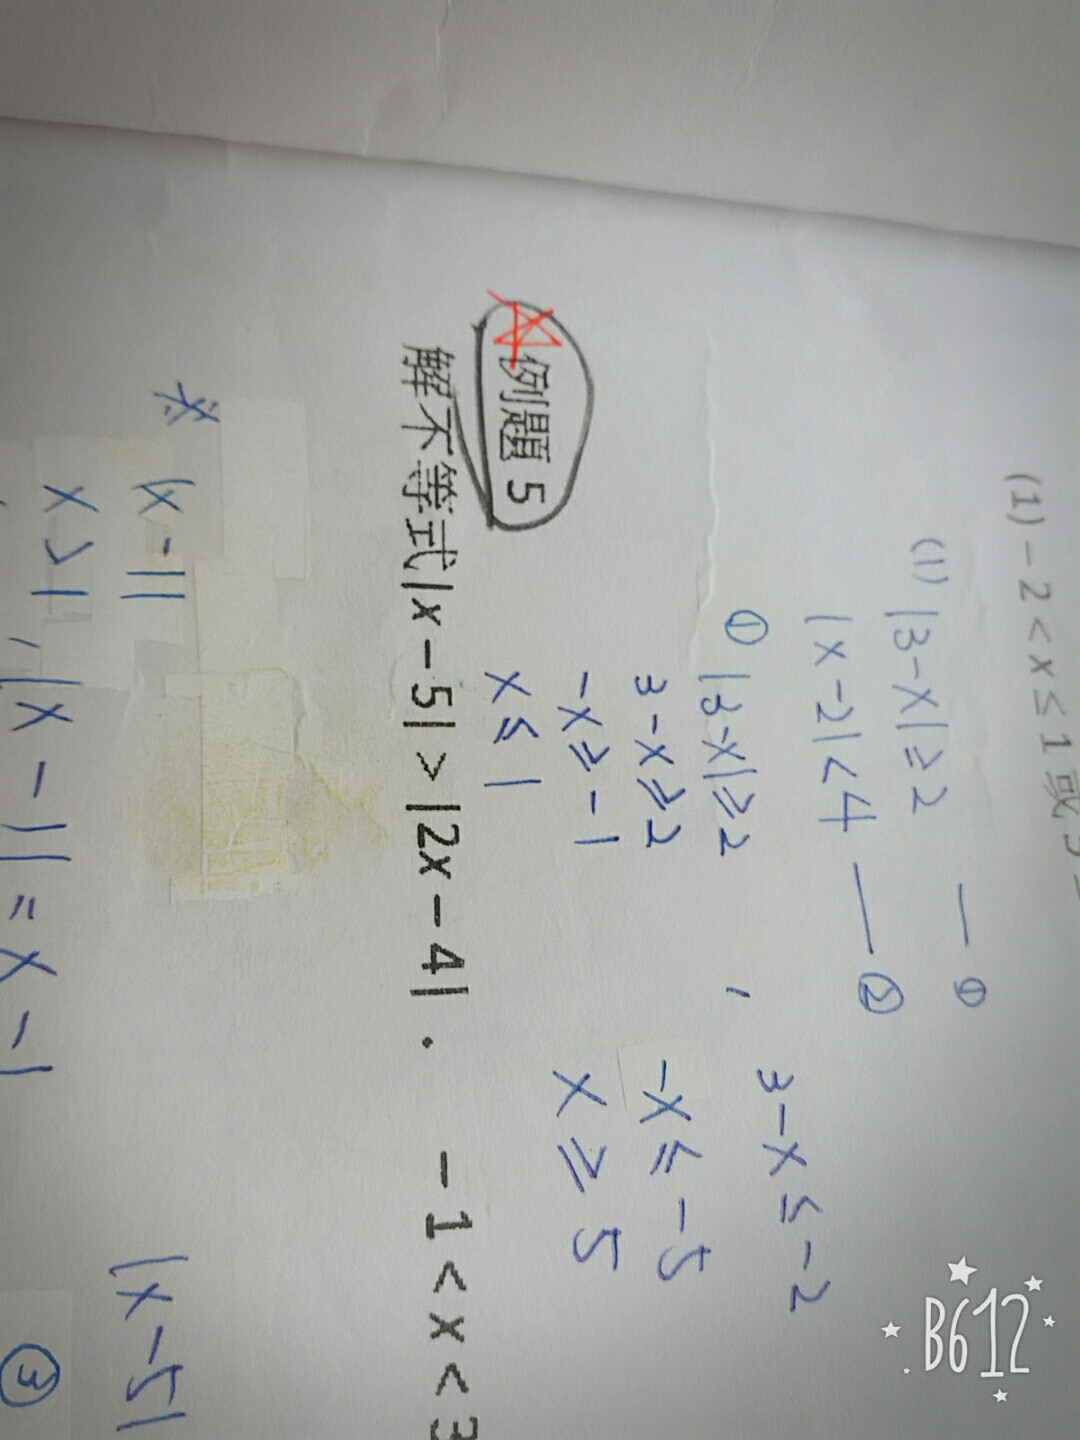 (1) -2 < x ≤ 1 或 5
(1) |3-x| ≥ 2 — ①
|x-2| < 4 — ②
① |3-x| ≥ 2 , 3-x ≤ -2
3-x ≥ 2 -x ≤ -5
-x ≥ -1 x ≥ 5
x ≤ 1
例題 5
解不等式 |x-5| > |2x-4| . -1 < x < 3
※ |x-1| |x-5|
x > 1 , |x-1| = x-1 ③
B612